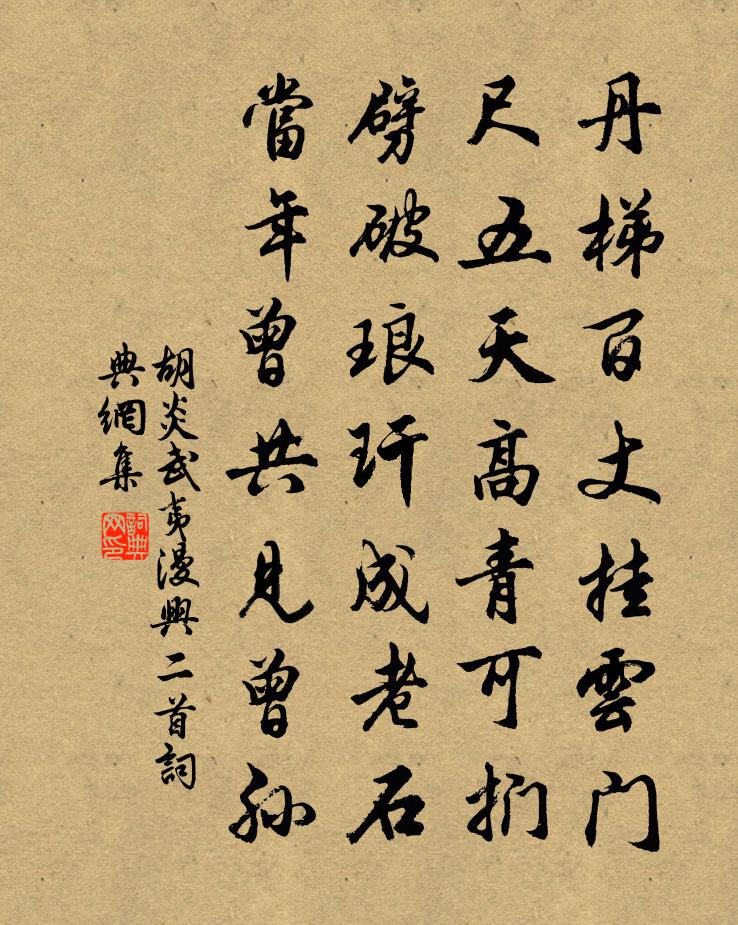 丹梯百丈挂雲门
尺五天高青可捫
劈破琅玕成老石
當年曾共見曾孙
胡炎武夷漫興二首詞
典網集
詞典
网印